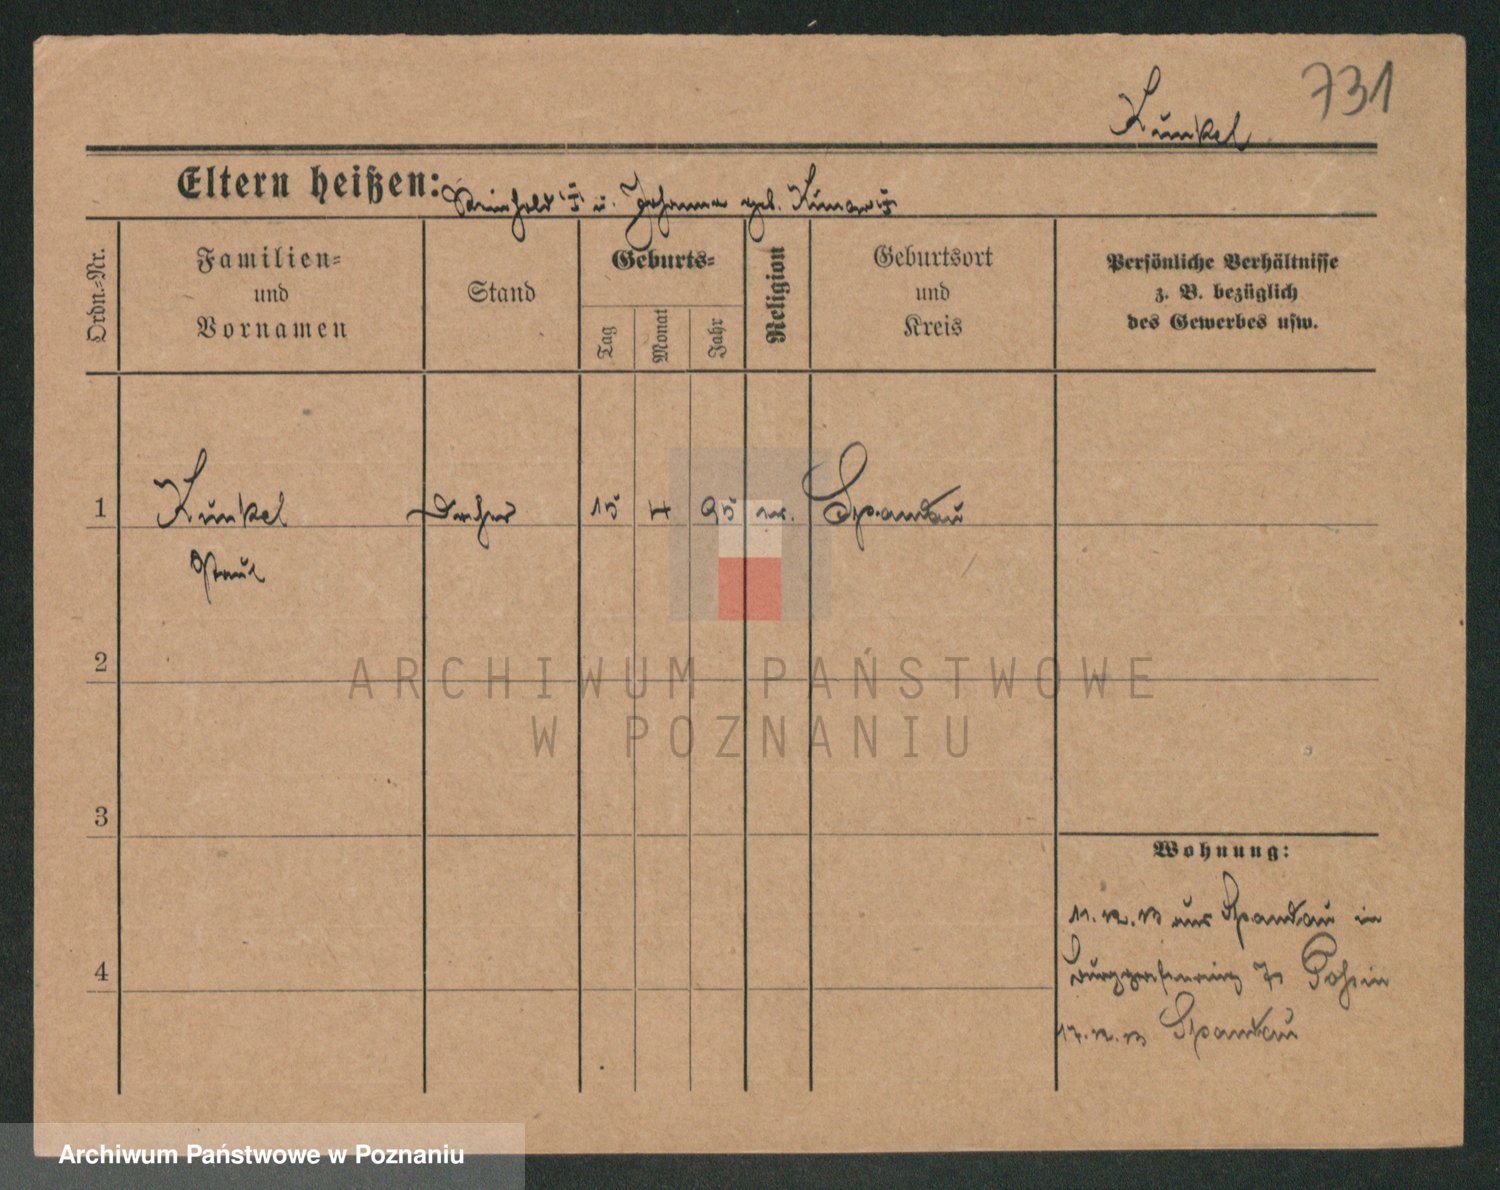 731
Kunkel
Eltern heißen: Reinhold u. Johanna geb.
Ordn.-Nr.
Familien-
und
Vornamen
Stand
Geburts-
Tag
Monat
Jahr
Religion
Geburtsort
und
Kreis
Persönliche Verhältnisse
z. B. bezüglich
des Gewerbes usw.
1
Kunkel
Dreher
15
4
95
ev.
Spandau
Paul
2
3
4
Wohnung:
11.12.13 aus Spandau in
17.12.13 Spandau
ARCHIWUM PAŃSTWOWE
W POZNANIU
Archiwum Państwowe w Poznaniu